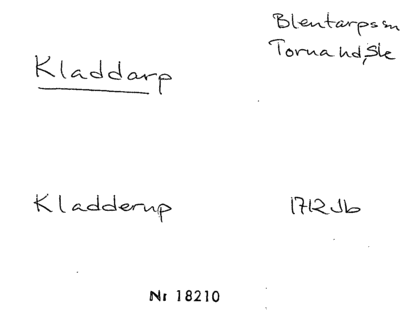 Blentarps sn
Torna hd, Sk
Kladdarp
Kladderup 1712 Jb
Nr 18210